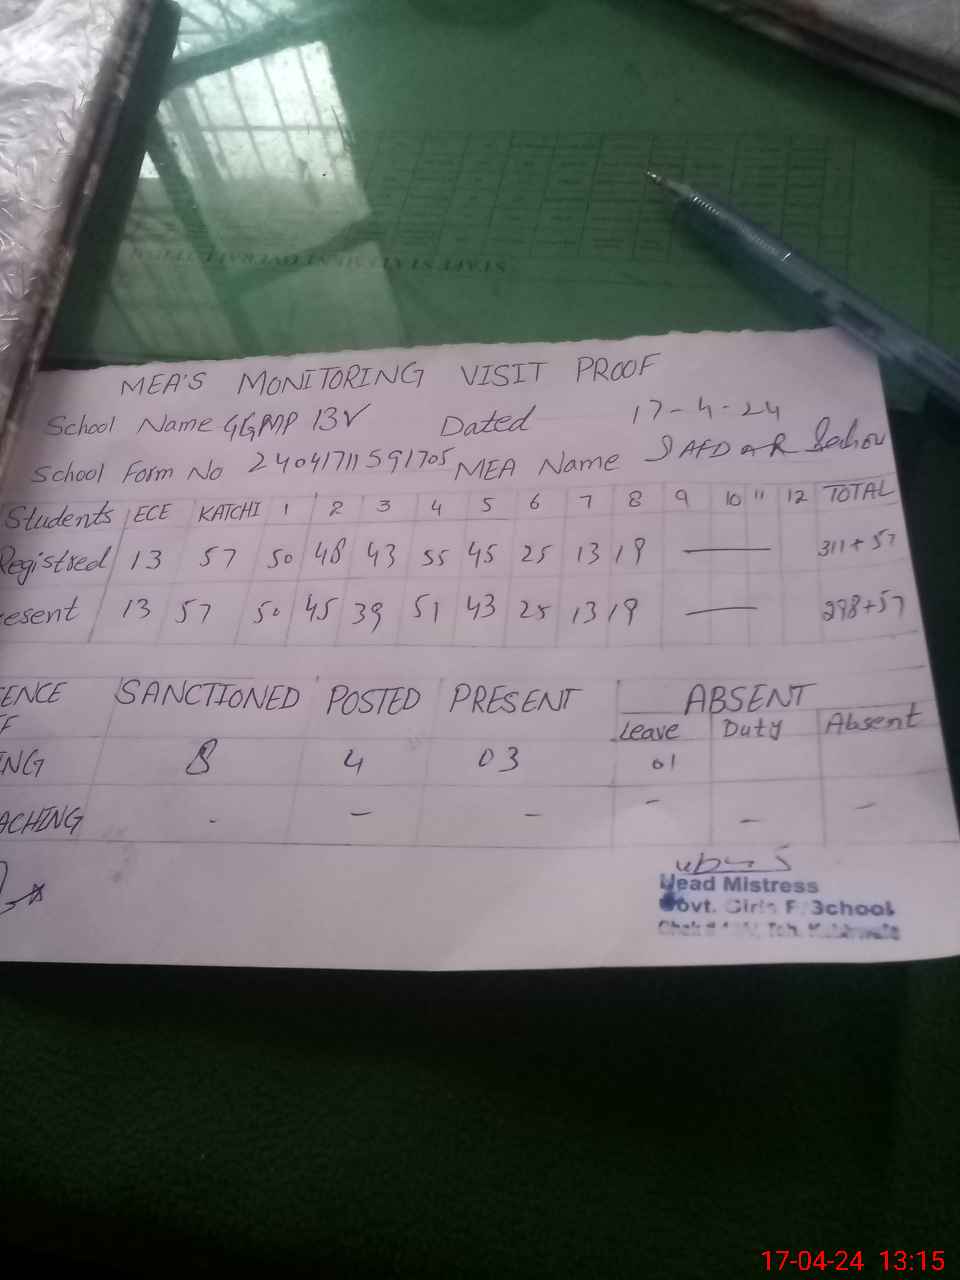 MEA'S MONITORING VISIT PROOF
School Name GGPMP 13V Dated 17-4-24
School Form No 24041711591705 MEA Name SAFDAR
Students ECE KATCHI 1 2 3 4 5 6 7 8 9 10 11 12 TOTAL
Registred 13 57 50 48 43 55 45 25 13 19 — 311+57
esent 13 57 50 45 39 51 43 25 13 19 — 298+57
ENCE SANCTIONED POSTED PRESENT ABSENT
F Leave Duty Absent
NG 8 4 03 01
ACHING - - - - - -
Head Mistress
Govt. Girls School
17-04-24 13:15